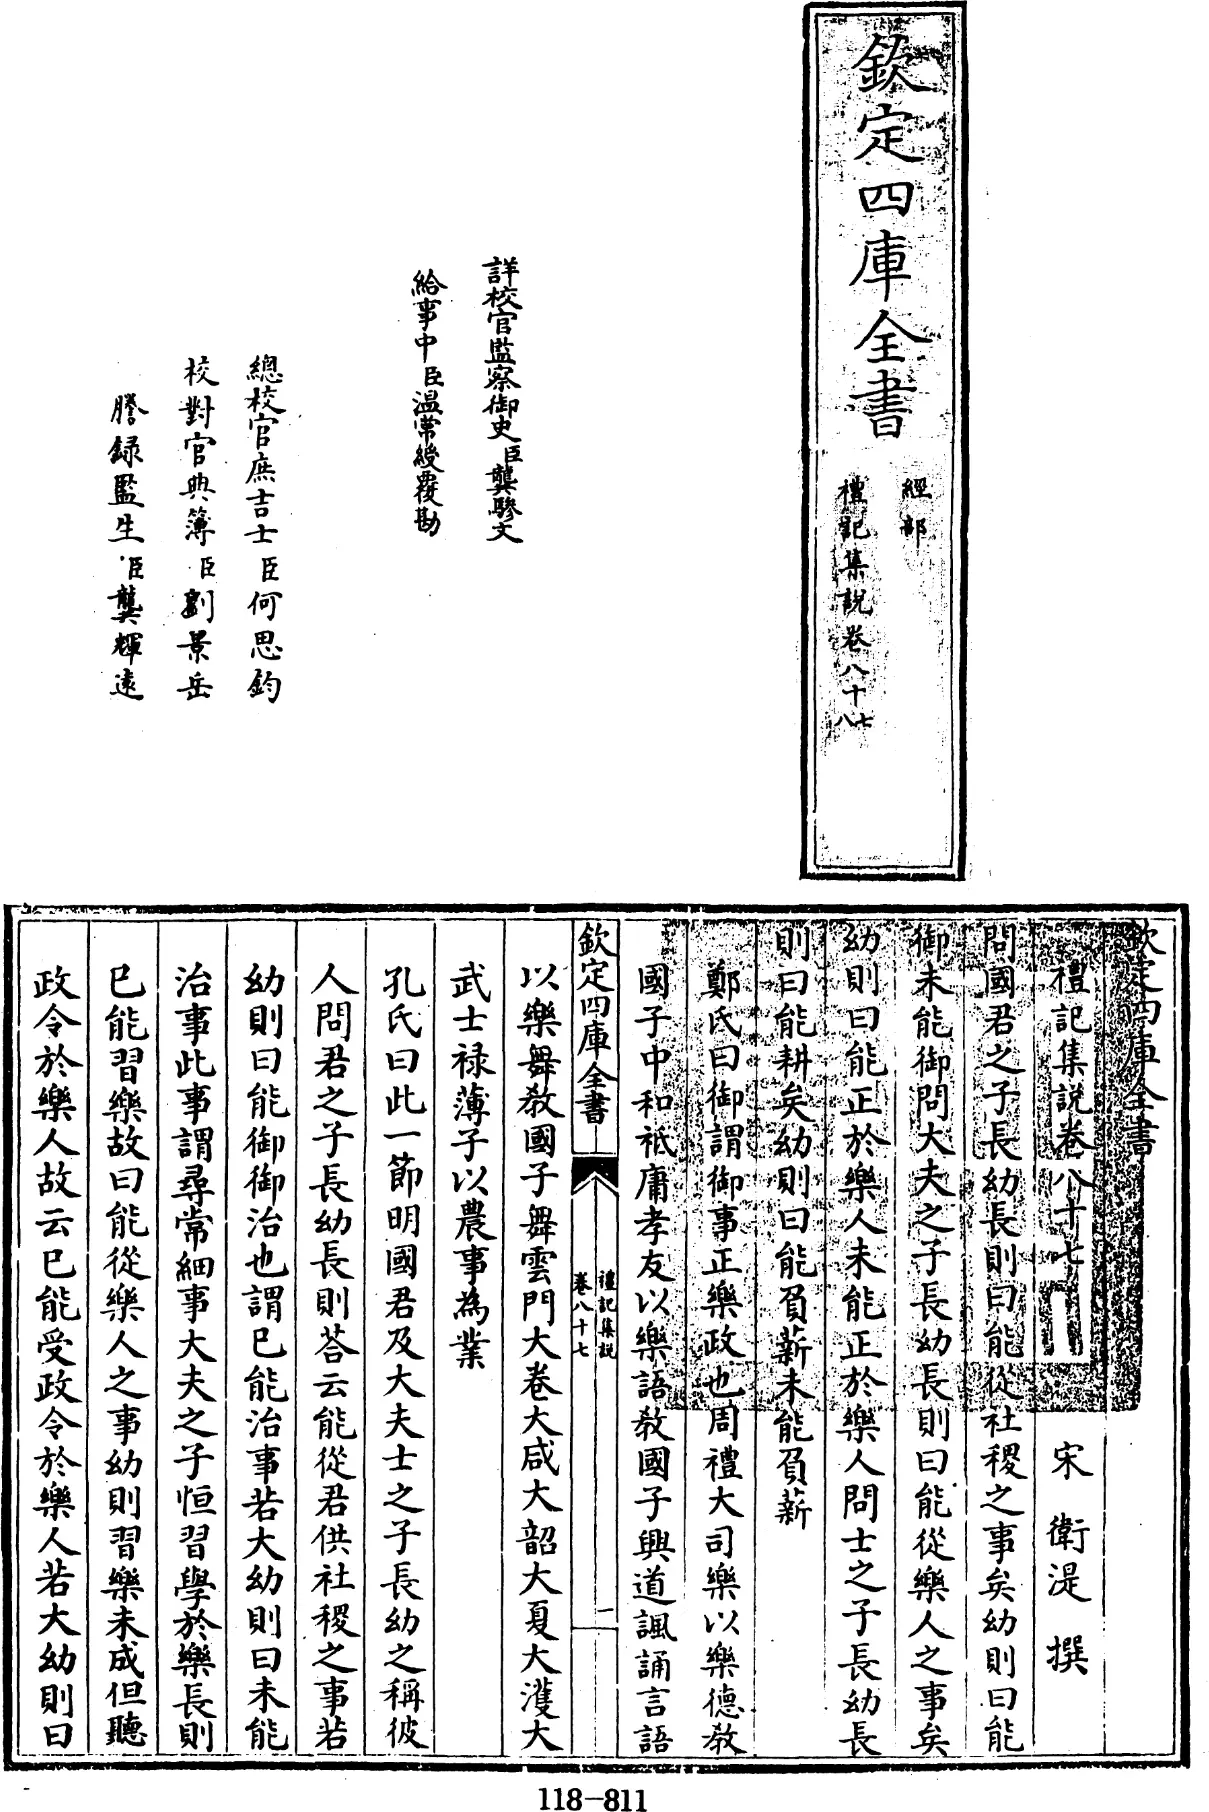 欽定四庫全書
經部
禮記集說卷八十七
八
詳校官監察御史臣龔驂文
給事中臣温常綬覆勘
總校官庶吉士臣何思鈞
校對官典簿臣劉景岳
謄録監生臣龔輝遠
欽定四庫全書
禮記集說卷八十七
宋 衛湜 撰
問國君之子長幼長則曰能從社稷之事矣幼則曰能
御未能御問大夫之子長幼長則曰能從樂人之事矣
幼則曰能正於樂人未能正於樂人問士之子長幼長
則曰能耕矣幼則曰能負薪未能負薪
鄭氏曰御謂御事正樂政也周禮大司樂以樂德教
國子中和祗庸孝友以樂語教國子興道諷誦言語
欽定四庫全書
禮記集說
卷八十七
一
以樂舞教國子舞雲門大卷大咸大韶大夏大濩大
武士禄薄子以農事為業
孔氏曰此一節明國君及大夫士之子長幼之稱彼
人問君之子長幼長則荅云能從君供社稷之事若
幼則曰能御御治也謂已能治事若大幼則曰未能
治事此事謂尋常細事大夫之子恒習學於樂長則
已能習樂故曰能從樂人之事幼則習樂未成但聽
政令於樂人故云已能受政令於樂人若大幼則曰
118-811